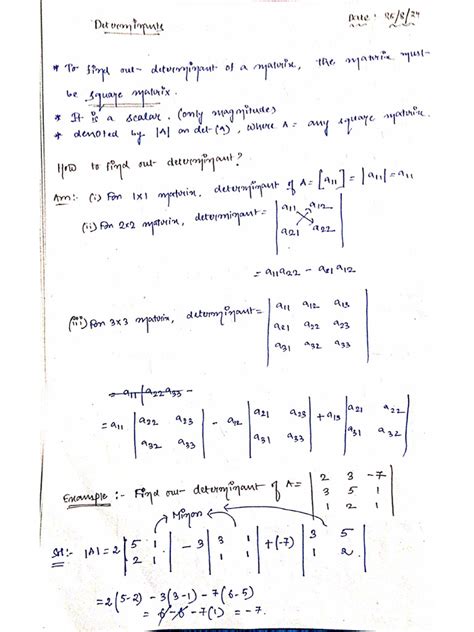 Determinants
Date: 26/8/24
* To find out determinant of a matrix, the matrix must
be square matrix.
* It is a scalar. (only magnitude)
* denoted by |A| or det(A), where A = any square matrix.
How to find out determinant?
Ans:- (i) For 1x1 matrix, determinant of A = [a11] = |a11| = a11
(ii) For 2x2 matrix, determinant = | a11 a12 |
| a21 a22 |
= a11a22 - a21a12
(iii) For 3x3 matrix, determinant = | a11 a12 a13 |
| a21 a22 a23 |
| a31 a32 a33 |
= a11 | a22 a23 | - a12 | a21 a23 | + a13 | a21 a22 |
| a32 a33 | | a31 a33 | | a31 a32 |
Example :- Find out determinant of A = | 2 3 -7 |
| 3 5 1 |
| 1 2 1 |
Minor
|A| = 2 | 5 1 | - 3 | 3 1 | + (-7) | 3 5 |
| 2 1 | | 1 1 | | 1 2 |
= 2(5-2) - 3(3-1) - 7(6-5)
= 6 - 6 - 7(1) = -7.